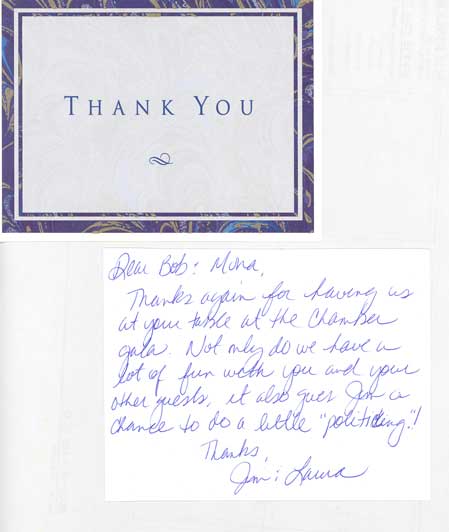 THANK YOU
Dear Bob & Mona,
Thanks again for having us
at your table at the Chamber
gala. Not only do we have a
lot of fun with you and your
other guests, it also gives Jim a
chance to do a little "politicing"!
Thanks,
Jim & Laura